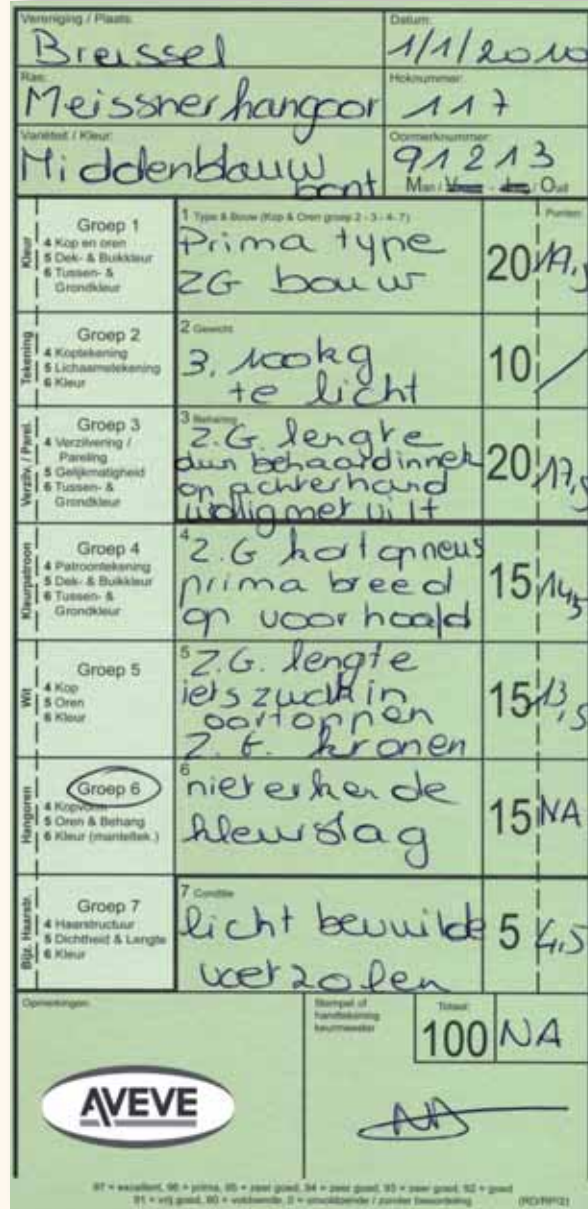 Vereniging / Plaats: Datum:
Breissel 1/1/2010
Ras: Hoknummer:
Meissner hangoor 117
Variëteit / Kleur: Oormerknummer:
Middenblauw bont 91213
Man / Vrouw - Jong / Oud
Kleur
Groep 1
4 Kop en oren
5 Dek- & Buikkleur
6 Tussen- & Grondkleur
1 Type & Bouw (Kop & Oren groep 2 - 3 - 4- 7) Punten:
Prima type
ZG bouw
20 19,5
Tekening
Groep 2
4 Koptekening
5 Lichaamstekening
6 Kleur
2 Gewicht
3.100kg
te licht
10 /
Verzilv. / Parel.
Groep 3
4 Verzilvering / Pareling
5 Gelijkmatigheid
6 Tussen- & Grondkleur
3 Beharing
Z.G lengte
dun behaard in nek
op achterhand
wollig met vilt
20 17,5
Kleurpatroon
Groep 4
4 Patroontekening
5 Dek- & Buikkleur
6 Tussen- & Grondkleur
4
Z.G kort op neus
prima breed
op voorhoofd
15 14,5
Wit
Groep 5
4 Kop
5 Oren
6 Kleur
5
Z.G. lengte
iets zwak in
oortoppen
Z.G. kronen
15 13,5
Hangoren
Groep 6
4 Kopvorm
5 Oren & Behang
6 Kleur (manteltek.)
6
niet erkende
kleurslag
15 NA
Bijz. Haarstr.
Groep 7
4 Haarstructuur
5 Dichtheid & Lengte
6 Kleur
7 Conditie
licht bevuilde
voetzolen
5 4,5
Opmerkingen:
AVEVE
Stempel of
handtekening
keurmeester
Totaal:
100 NA
97 = excellent, 96 = prima, 95 = zeer goed, 94 = zeer goed, 93 = zeer goed, 92 = goed
91 = vrij goed, 90 = voldoende, 0 = onvoldoende / zonder beoordeling (RD/RP/2)